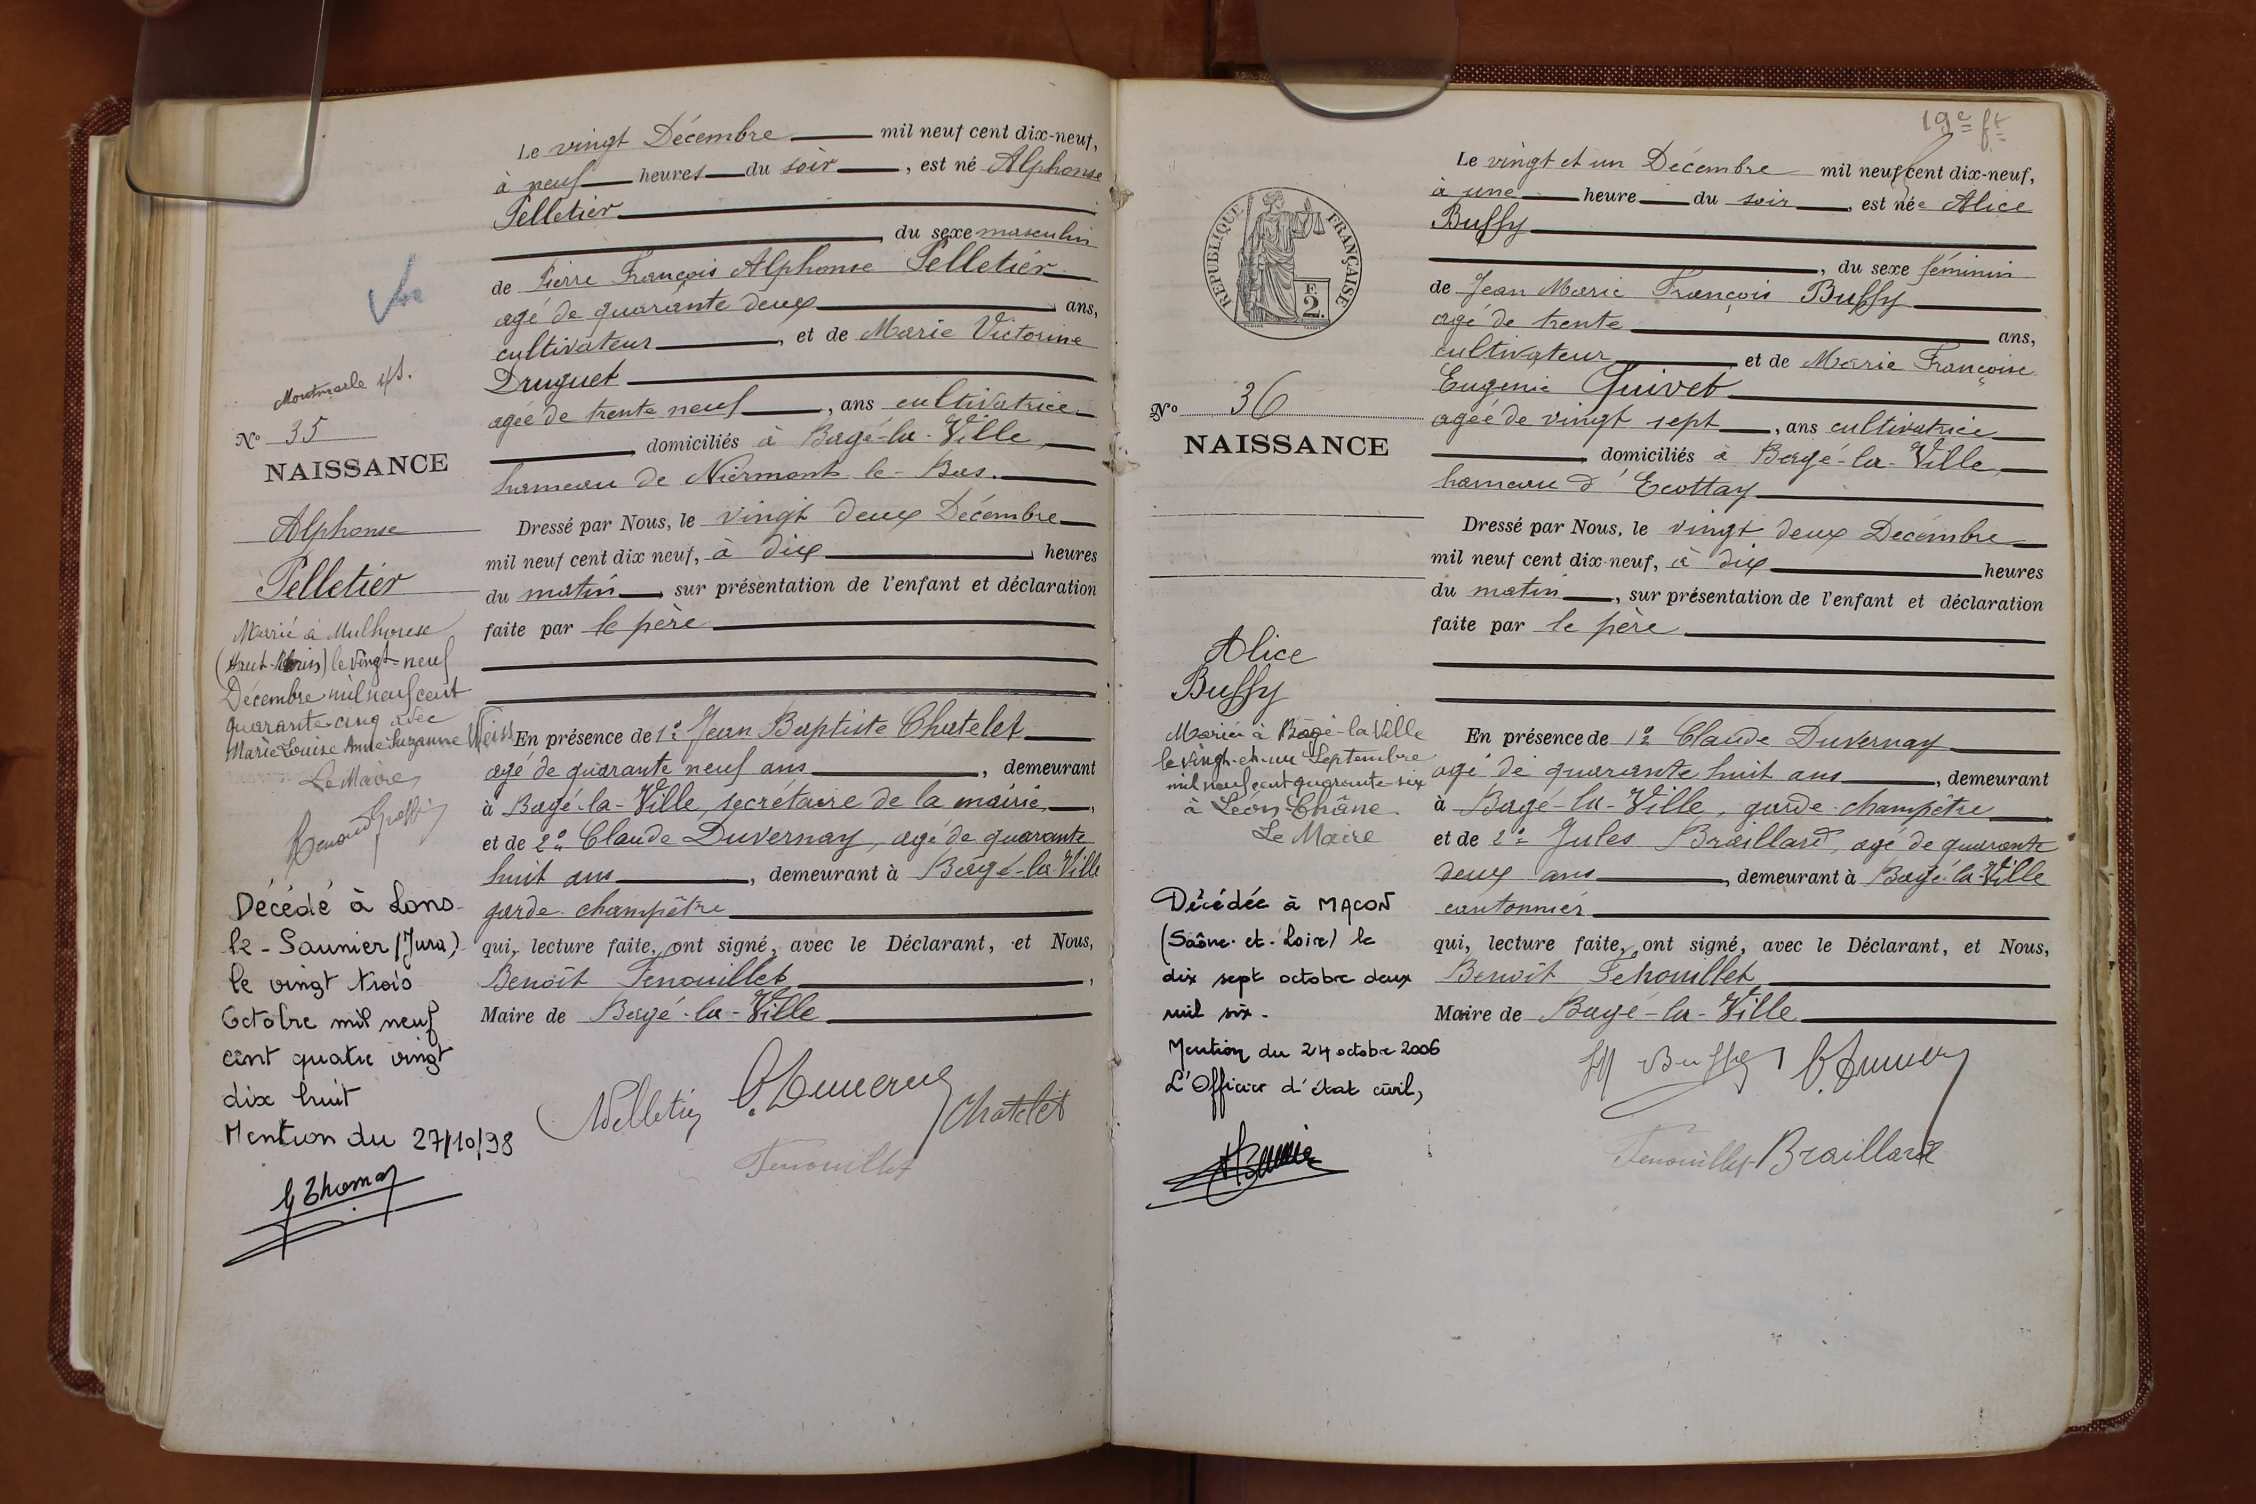 Le vingt Décembre mil neuf cent dix-neuf,
à neuf heures du soir, est né Alphonse
Pelletier
, du sexe masculin
de Pierre François Alphonse Pelletier
agé de quarante deux ans,
cultivateur, et de Marie Victorine
Druguet
agée de trente neuf, ans cultivatrice
, domiciliés à Bagé-la-Ville,
hameau de Niermont le-Bas.
Dressé par Nous, le vingt deux Décembre
mil neuf cent dix neuf, à dix heures
du matin, sur présentation de l'enfant et déclaration
faite par le père
En présence de 1° Jean Baptiste Chatelet
agé de quarante neuf ans, demeurant
à Bagé-la-Ville, secrétaire de la mairie,
et de 2° Claude Duvernay, agé de quarante
huit ans, demeurant à Bagé-la-Ville
garde-champêtre
qui, lecture faite, ont signé, avec le Déclarant, et Nous,
Benoît Fenouillet,
Maire de Bagé-la-Ville
Chatelet
Fenouillet
N° 35
NAISSANCE
Alphonse
Pelletier
Marié à Mulhouse
(Haut-Rhin) le vingt-neuf
Décembre mil neuf cent
quarante-cinq avec
Marie Louise Anne Suzanne Weiss
Le Maire
Décédé à Lons-
le-Saunier (Jura)
le vingt trois
Octobre mil neuf
cent quatre vingt
dix huit
Mention du 27/10/98
19e ft
Le vingt et un Décembre mil neuf cent dix-neuf,
à une heure du soir, est née Alice
Buffy
, du sexe féminin
de Jean Marie François Buffy
agé de trente ans,
cultivateur et de Marie Françoise
Eugenie Quivet
agée de vingt sept, ans cultivatrice
domiciliés à Bagé-la-Ville,
hameau d'Ecottay
Dressé par Nous, le vingt deux Décembre
mil neuf cent dix-neuf, à dix heures
du matin, sur présentation de l'enfant et déclaration
faite par le père
En présence de 1° Claude Duvernay
agé de quarante huit ans, demeurant
à Bagé-la-Ville, garde-champêtre
et de 2° Jules Braillard, agé de quarante
deux ans, demeurant à Bagé-la-Ville
cantonnier
qui, lecture faite, ont signé, avec le Déclarant, et Nous,
Benoît Fenouillet
Maire de Bagé-la-Ville
Buffy
Fenouillet Braillard
RÉPUBLIQUE FRANÇAISE
F.
2.
N° 36
NAISSANCE
Alice
Buffy
Mariée à Bagé-la-Ville
le vingt-et-un Septembre
mil neuf cent quarante-six
à Léon Châne
Le Maire
Décédée à MACON
(Saône-et-Loire) le
dix sept octobre deux
mil six.
Mention du 24 octobre 2006
L'Officier d'état civil,